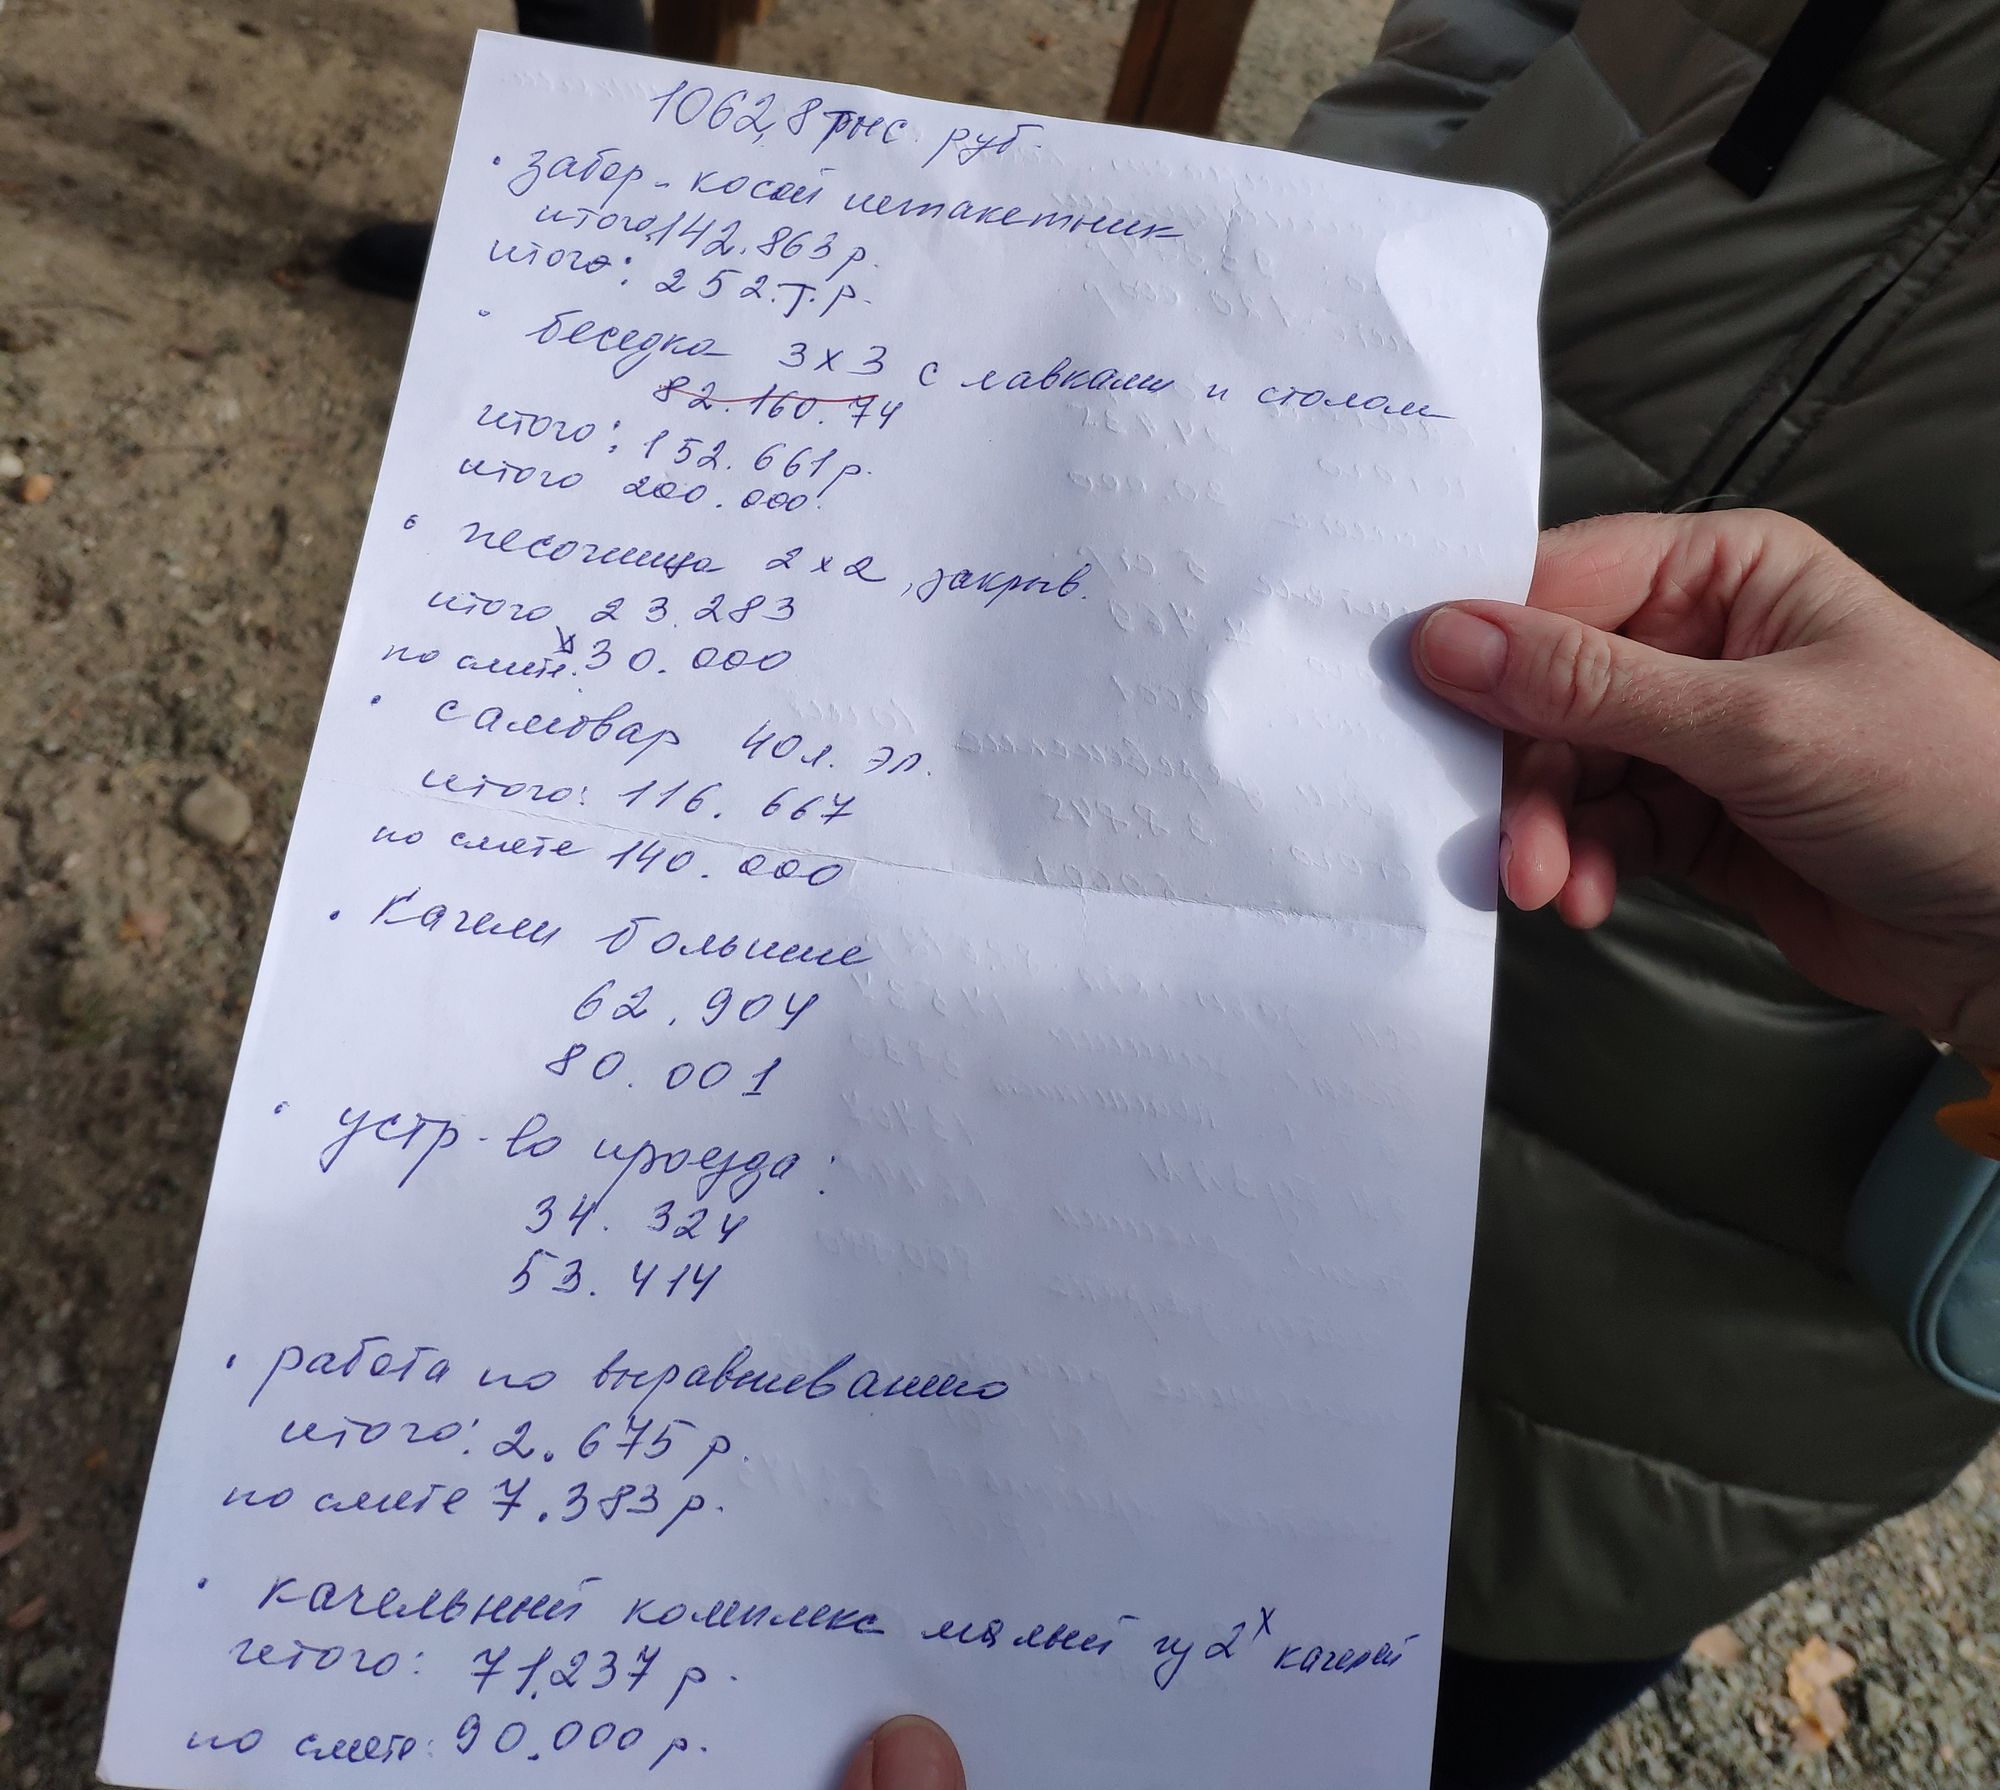 1062,8 тыс. руб.
· забор - косой штакетник
итого 142.863 р.
итого: 252.т.р.
· беседка 3х3 с лавками и столом
82.160.74
итого: 152.661 р.
итого 200.000
· песочница 2х2, закрыв.
итого 23.283
по смете: 30.000
· самовар 40л. эл.
итого: 116.667
по смете 140.000
· Качели большие
62.904
80.001
· устр-во проезда:
34.324
53.414
· работа по выравниванию
итого: 2.675 р.
по смете 7.383 р.
· качельный комплекс малый 2х качелей
итого: 71.237 р.
по смете: 90.000 р.